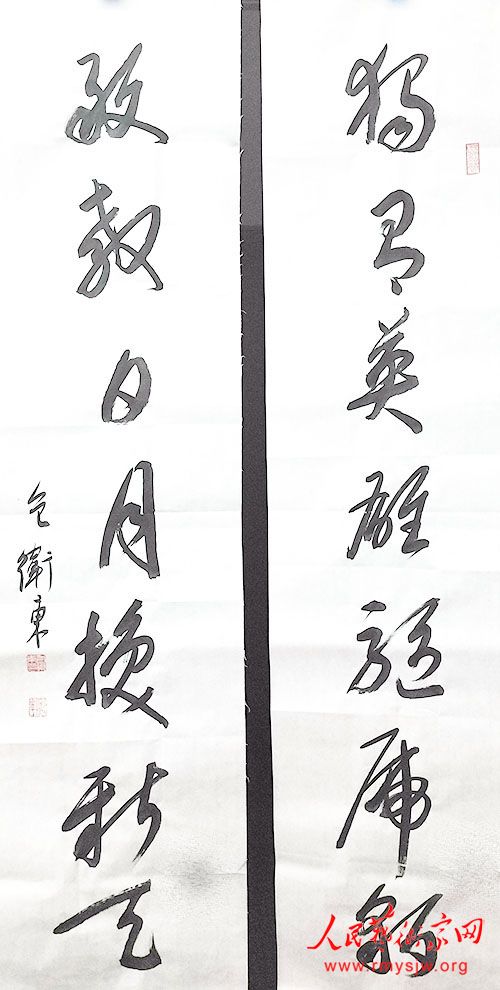 獨有英雄驅虎豹
敢教日月換新天
衛東
人民艺术家网
www.rmysjw.org